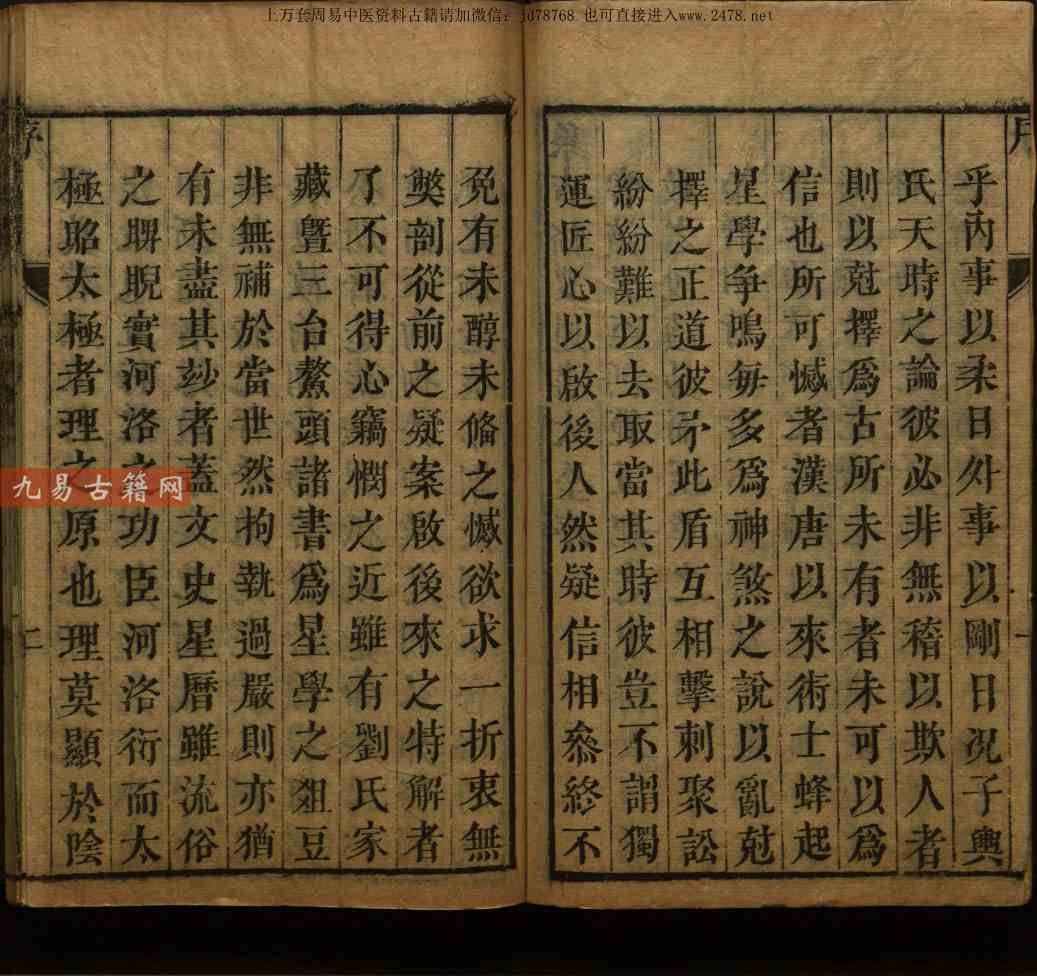 上万套周易中医资料古籍请加微信:jd78768 也可直接进入www.2478.net
序
乎內事以柔日外事以剛日况子輿
氏天時之論彼必非無稽以欺人者
則以尅擇爲古所未有者未可以爲
信也所可憾者漢唐以來術士蜂起
星學争鳴每多爲神煞之說以亂尅
擇之正道彼矛此盾互相擊刺聚訟
紛紛難以去取當其時彼豈不謂獨
運匠心以啟後人然疑信相叅終不
免有未醇未偹之憾欲求一折衷無
獘剖從前之疑案啟後來之特解者
了不可得心竊憫之近雖有劉氏家
藏暨三台鰲頭諸書爲星學之俎豆
非無補於當世然拘執過嚴則亦猶
有未盡其玅者蓋文史星曆雖流俗
之睥睨實河洛之功臣河洛衍而太
極昭太極者理之原也理莫顯於陰
序
二
九易古籍网